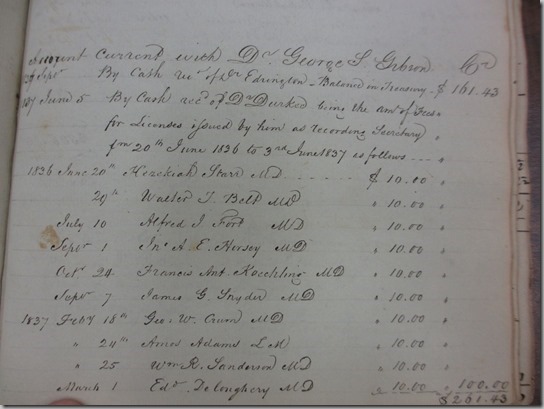 Account Current with Dr. George S. Gibson Cr
Sept By Cash recd of Dr Edrington Balance in Treasury $161.43
1837 June 5 By Cash recd of Dr Durkee being the amt of Fees
for Licenses issued by him as recording Secretary "
from 20th June 1836 to 3rd June 1837 as follows "
1836 June 20th Hezekiah Starr MD $ 10.00 "
20th Walter T. Belt MD " 10.00 "
July 10 Alfred J Fort MD " 10.00 "
Sept 1 Jno A. E. Hersey MD " 10.00 "
Octr 24 Francis Ant Koechling MD " 10.00 "
Septr 7 James G. Snyder MD " 10.00 "
1837 Feby 18th Geo. W. Crum MD " 10.00 "
" 24th Amos Adams LM " 10.00 "
" 25 Wm R. Sanderson MD " 10.00 "
March 1 Edw. Deloughery MD " 10.00 " 100.00
$261.43